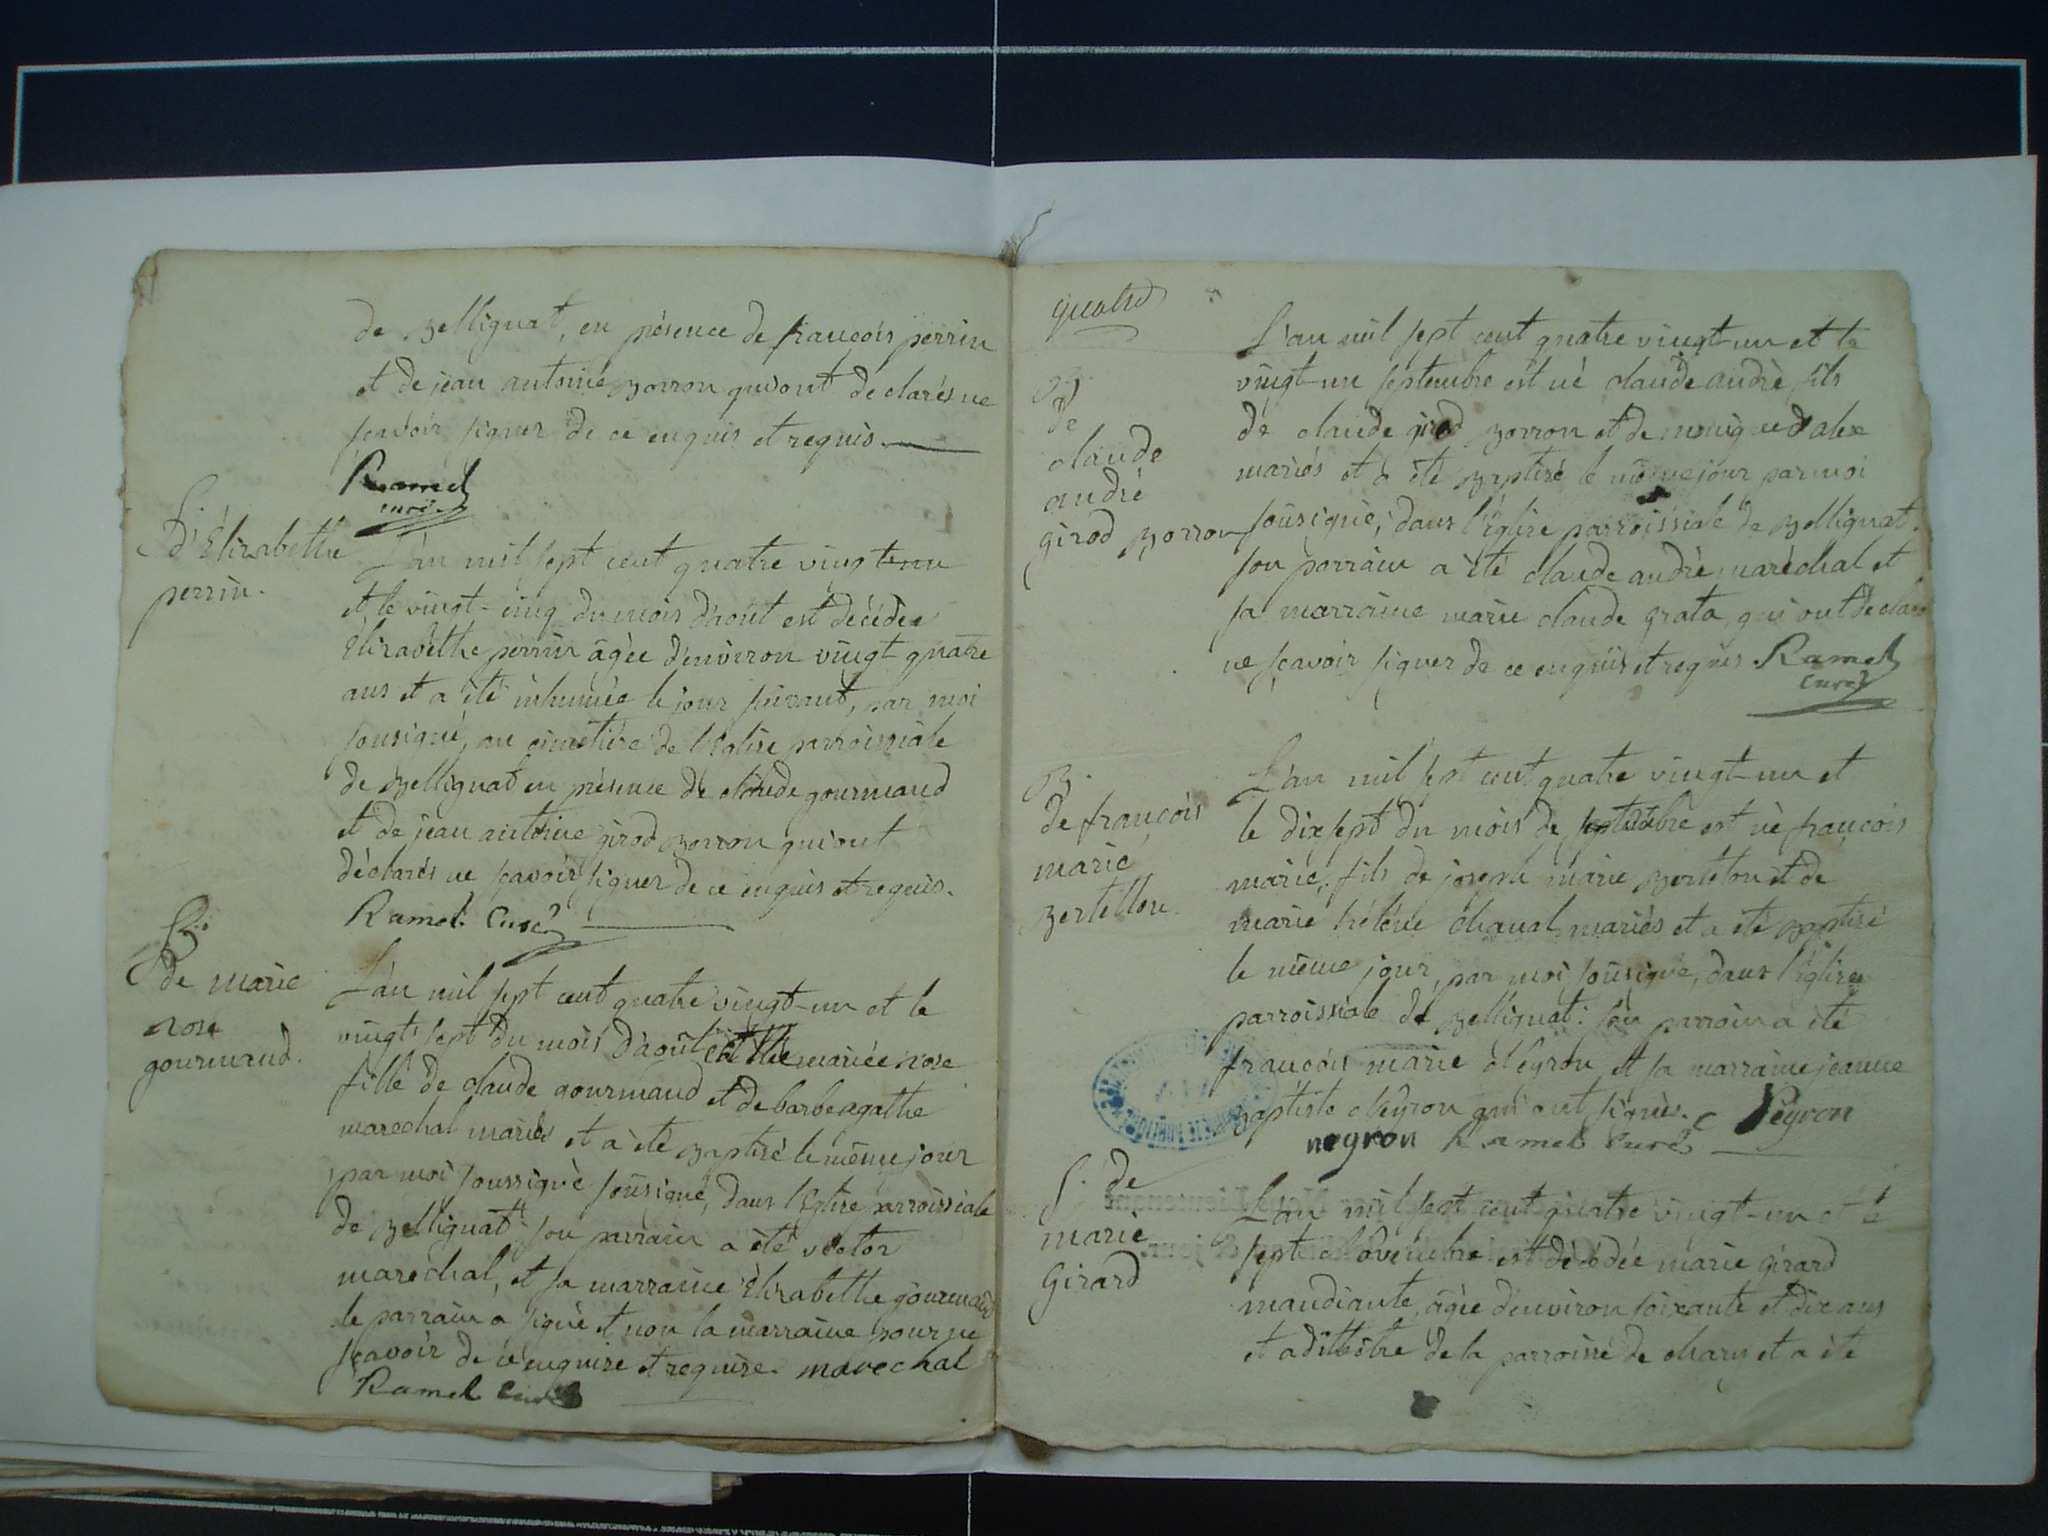 de Bellignat, en présence de françois perrin
et de jean antoine Borron qui ont déclarés ne
sçavoir signer de ce enquis et requis.
Ramel
curé
S. d'Élizabethe
perrin.
L'an mil sept cent quatre vingt un
et le vingt-cinq du mois d'aoùt est décédée
Élizabethe perrin âgée d'environ vingt quatre
ans et a été inhumée le jour suivant, par moi
sousigné, au cimetière de l'Eglise parroissiale
de Bellignat en présence de claude gourmand
et de jean antoine girod Borron qui ont
déclarés ne sçavoir signer de ce enquis et requis.
Ramel Curé
B.
de marie
rose
gourmand.
L'an mil sept cent quatre vingt-un et le
vingt sept du mois d'aoùt est née marie rose
fille de claude gourmand et de barbe agathe
marechal mariés et a été Baptisé le même jour
par moi soussigné sousigné, dans l'Eglise parroissiale
de Bellignat: son parrain a été victor
marechal, et sa marraine Élizabethe gourmand
le parrain a signé et non la marraine pour ne
sçavoir de ce enquise et requise. marechal
Ramel Curé
quatre
B.
de
claude
andré
girod Borron
L'an mil sept cent quatre vingt-un et le
vingt-un septembre est né claude andré fils
de claude girod Borron et de monique dalex
mariés et a été Baptisé le même jour par moi
sousigné, dans l'Eglise parroissiale de Bellignat.
son parrain a été claude andré maréchal et
sa marraine marie claude grata, qui ont déclaré
ne sçavoir signer de ce enquis et requis Ramel
Curé
B.
de françois
marie
Bertellon.
L'an mil sept cent quatre vingt-un et
le dix sept du mois de septembre est né françois
marie, fils de joseph marie Berteton et de
marie héléne chanal mariés et a été Baptisé
le même jour, par moi sousigné, dans l'Église
parroissiale de Bellignat: son parrain a été
françois marie Neyron et sa marraine jeanne
Baptiste Neyron qui ont signés. Neyron
negron Ramel Curé
S. de
marie
Girard
L'an mil sept cent quatre vingt-un et le
sept Novembre est décédée marie girard
mandiante, âgée d'environ soixante et dix ans
et a dit être de la parroisse de charix et a été